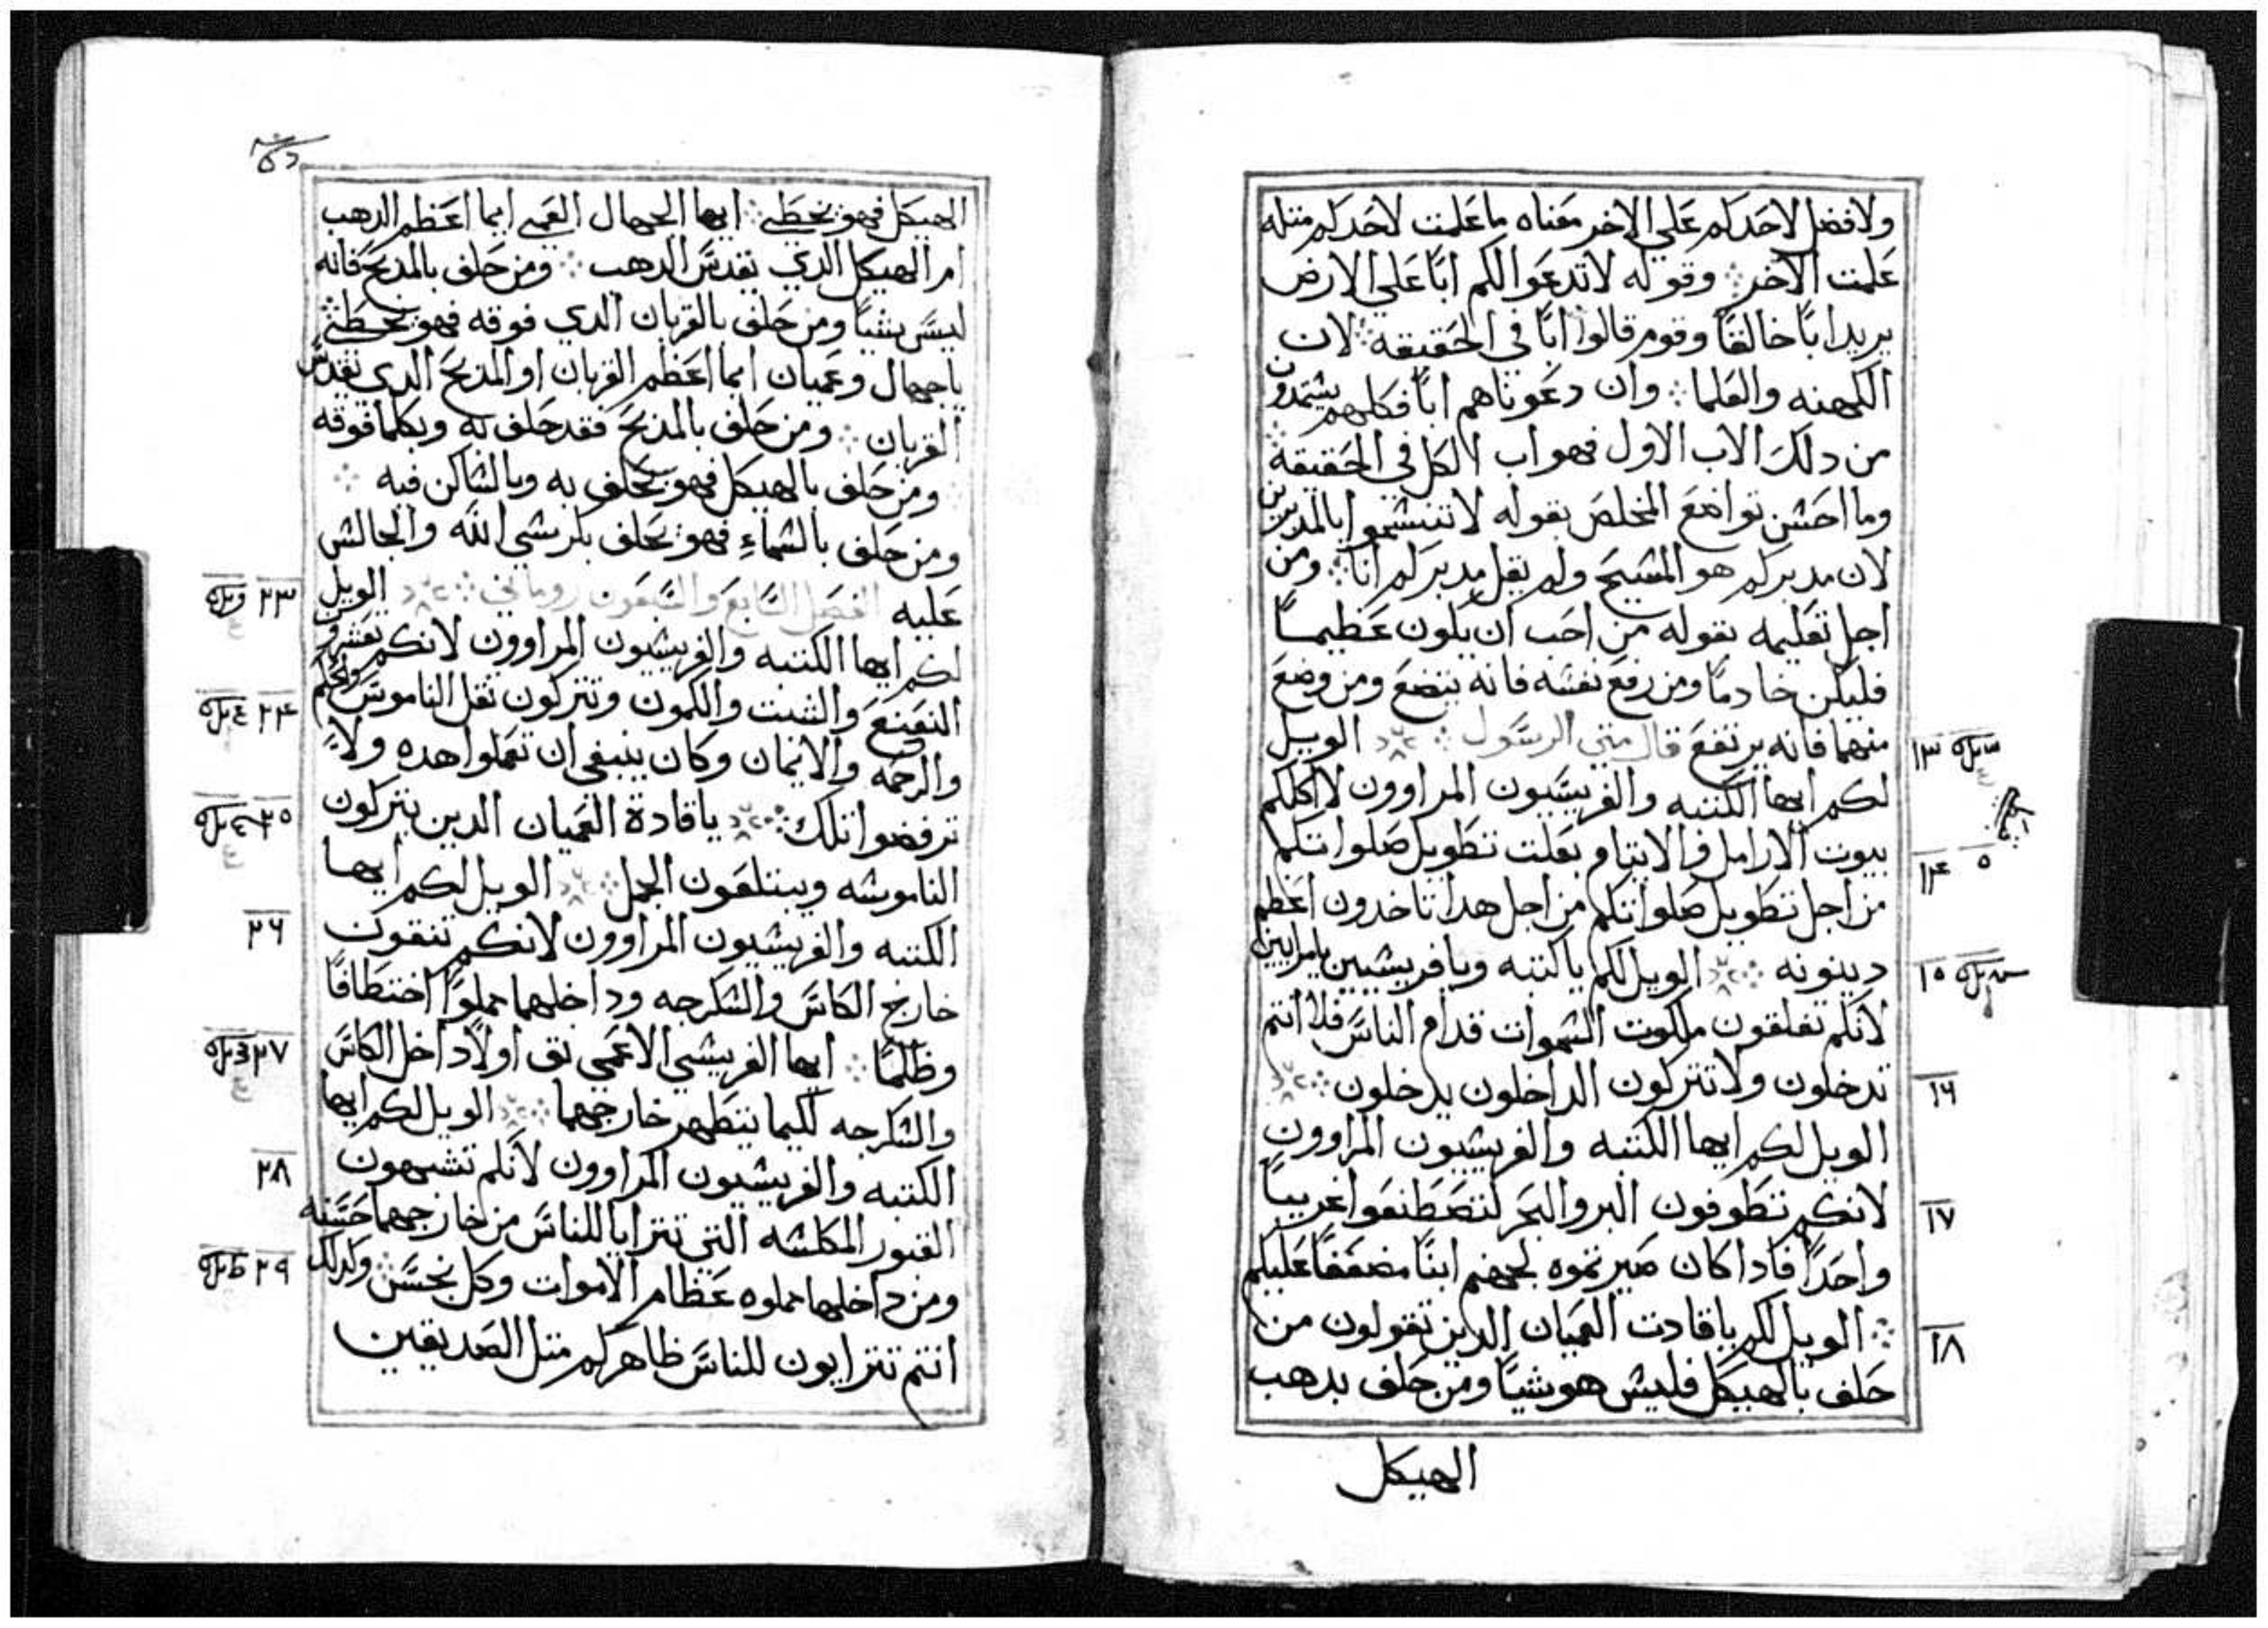 ولا فضل لاحدكم علي الاخر معناه ما علمت لاحدكم متله
علمت الاخر وقوله لا تدعوا لكم ابًا علي الارض
يريد ابًا خالقًا وقوم قالوا ابًا في الحقيقه لان
الكهنه والعلما وان دعوناهم ابًا فكلهم يستمدون
من دلك الاب الاول فهو اب الكل في الحقيقة
وما احسن تواضع المخلص بقوله لا تتسموا بالمدبرين
لان مدبركم هو المسيح ولم يقل مدبركم انا ومن
اجل تعليمه بقوله من احب ان يكون عظيمًا
فليكن خادمًا ومن رفع نفسه فانه يتضع ومن وضع
منهما فانه يرتفع قال متي الرسول الويل
لكم ايها الكتبه والفريسيون المراوون لاكلكم
بيوت الارامل والايتام بعلت تطويل صلواتكم
من اجل تطويل صلواتكم من اجل هدا تاخدون اعظم
دينونه الويل لكم يا كتبه ويا فريسيين يا مراييين
لانكم تغلقون ملكوت السموات قدام الناس فلا انتم
تدخلون ولا تتركون الداخلون يدخلون
الويل لكم ايها الكتبه والفريسيون المراوون
لانكم تطوفون البر والبحر لتصطنعوا غريبًا
واحدًا فادا كان صيرتموه لجهنم ابنًا مضعفًا عليكم
الويل لكم يا قادت العميان الدين تقولون من
حلف بالهيكل فليس هو شيًا ومن حلف بدهب
الهيكل
١٣
١٤
١٥
١٦
١٧
١٨
الهيكل فهو يخطي ايها الجهال العمي ايما اعظم الدهب
ام الهيكل الدي يقدس الدهب ومن حلف بالمدبح فانه
ليس بشيًا ومن حلف بالقربان الدي فوقه فهو يخطي
يا جهال وعميان ايما اعظم القربان او المدبح الدي يقدس
القربان ومن حلف بالمدبح فقد حلف به وبكلما فوقه
ومن حلف بالهيكل فهو يحلف به وبالساكن فيه
ومن حلف بالسماء فهو يحلف بكرسي الله والجالس
عليه الفصل السابع والسبعون روماني الويل
لكم ايها الكتبه والفريسيون المراوون لانكم تعشرون
النعنع والشبت والكمون وتتركون ثقل الناموس والحكم
والرحمه والايمان وكان ينبغي ان تعملوا هده ولا
ترفضوا تلك يا قادة العميان الدين يتركون
الناموسه ويبتلعون الجمل الويل لكم ايها
الكتبه والفريسيون المراوون لانكم تنقون
خارج الكاس والسكرجه وداخلهما مملوًا اختطافًا
وظلمًا ايها الفريسي الاعمي نق اولًا داخل الكاس
والسكرجه لكيما يتطهر خارجهما الويل لكم ايها
الكتبه والفريسيون المراوون لانكم تشبهون
القبور المكلسه التي تترايا للناس من خارجهما حسنه
ومن داخلها مملوه عظام الاموات وكل نجس ولدلك
انتم تترايون للناس ظاهركم متل الصديقين
٢٣
٢٤
٢٥
٢٦
٢٧
٢٨
٢٩